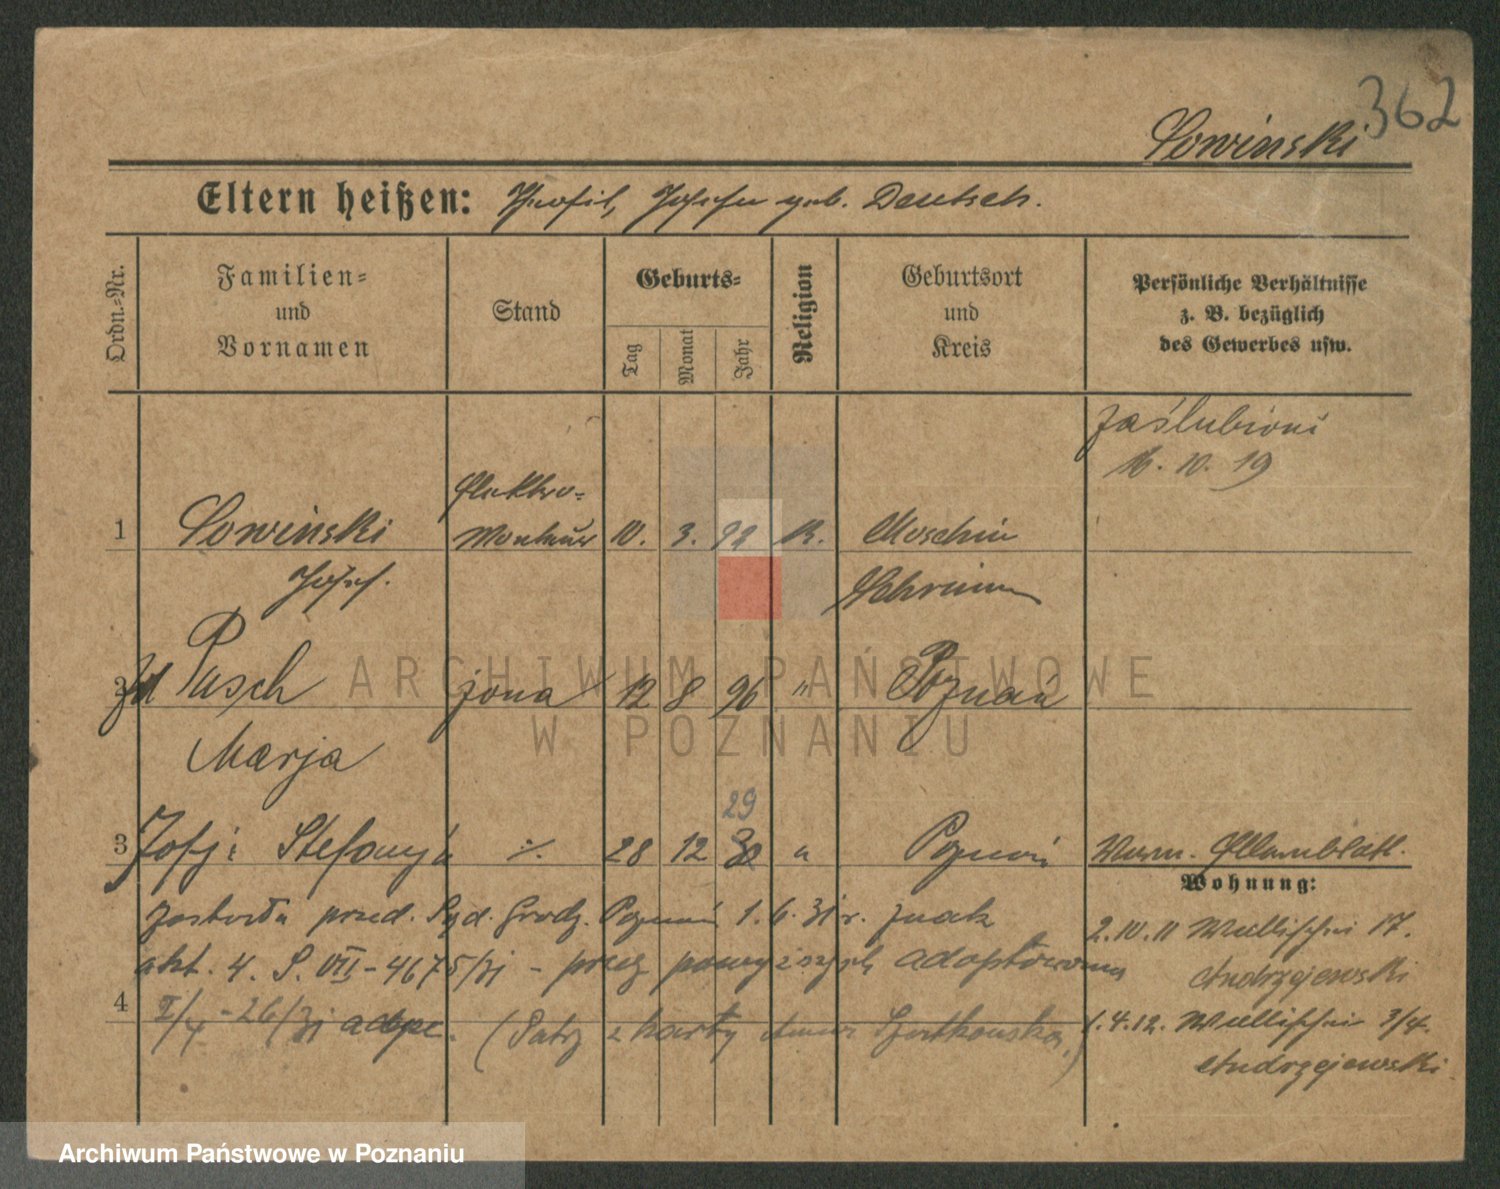 362
Sowinski
Eltern heißen: Theofil, Josefa geb. Deutsch.
Ordn.-Nr.
Familien-
und
Vornamen
Stand
Geburts-
Tag
Monat
Jahr
Religion
Geburtsort
und
Kreis
Persönliche Verhältnisse
z. B. bezüglich
des Gewerbes usw.
zaślubieni
16. 10. 19
Elektro-
1 Sowinski Monteur 10. 3. 92 K. Moschin
Josef. Schrimm
2 Pusch żona 12 8 96 " Poznań
Marja
29
3 Stefanja ./. 28 12 30 " Poznań
Wohnung:
przed. Sąd. Grodz. Poznań 1. 6. 31 r. znak
akt. 4. S. VII - 4675/31 - przez powyższych adoptowana
2.10.11 Wallischei 17.
Andrzejewski
4 - 26/31
(Patrz z karty
1.4.12. Wallischei 3/4.
Andrzejewski
ARCHIWUM PAŃSTWOWE
W POZNANIU
Archiwum Państwowe w Poznaniu